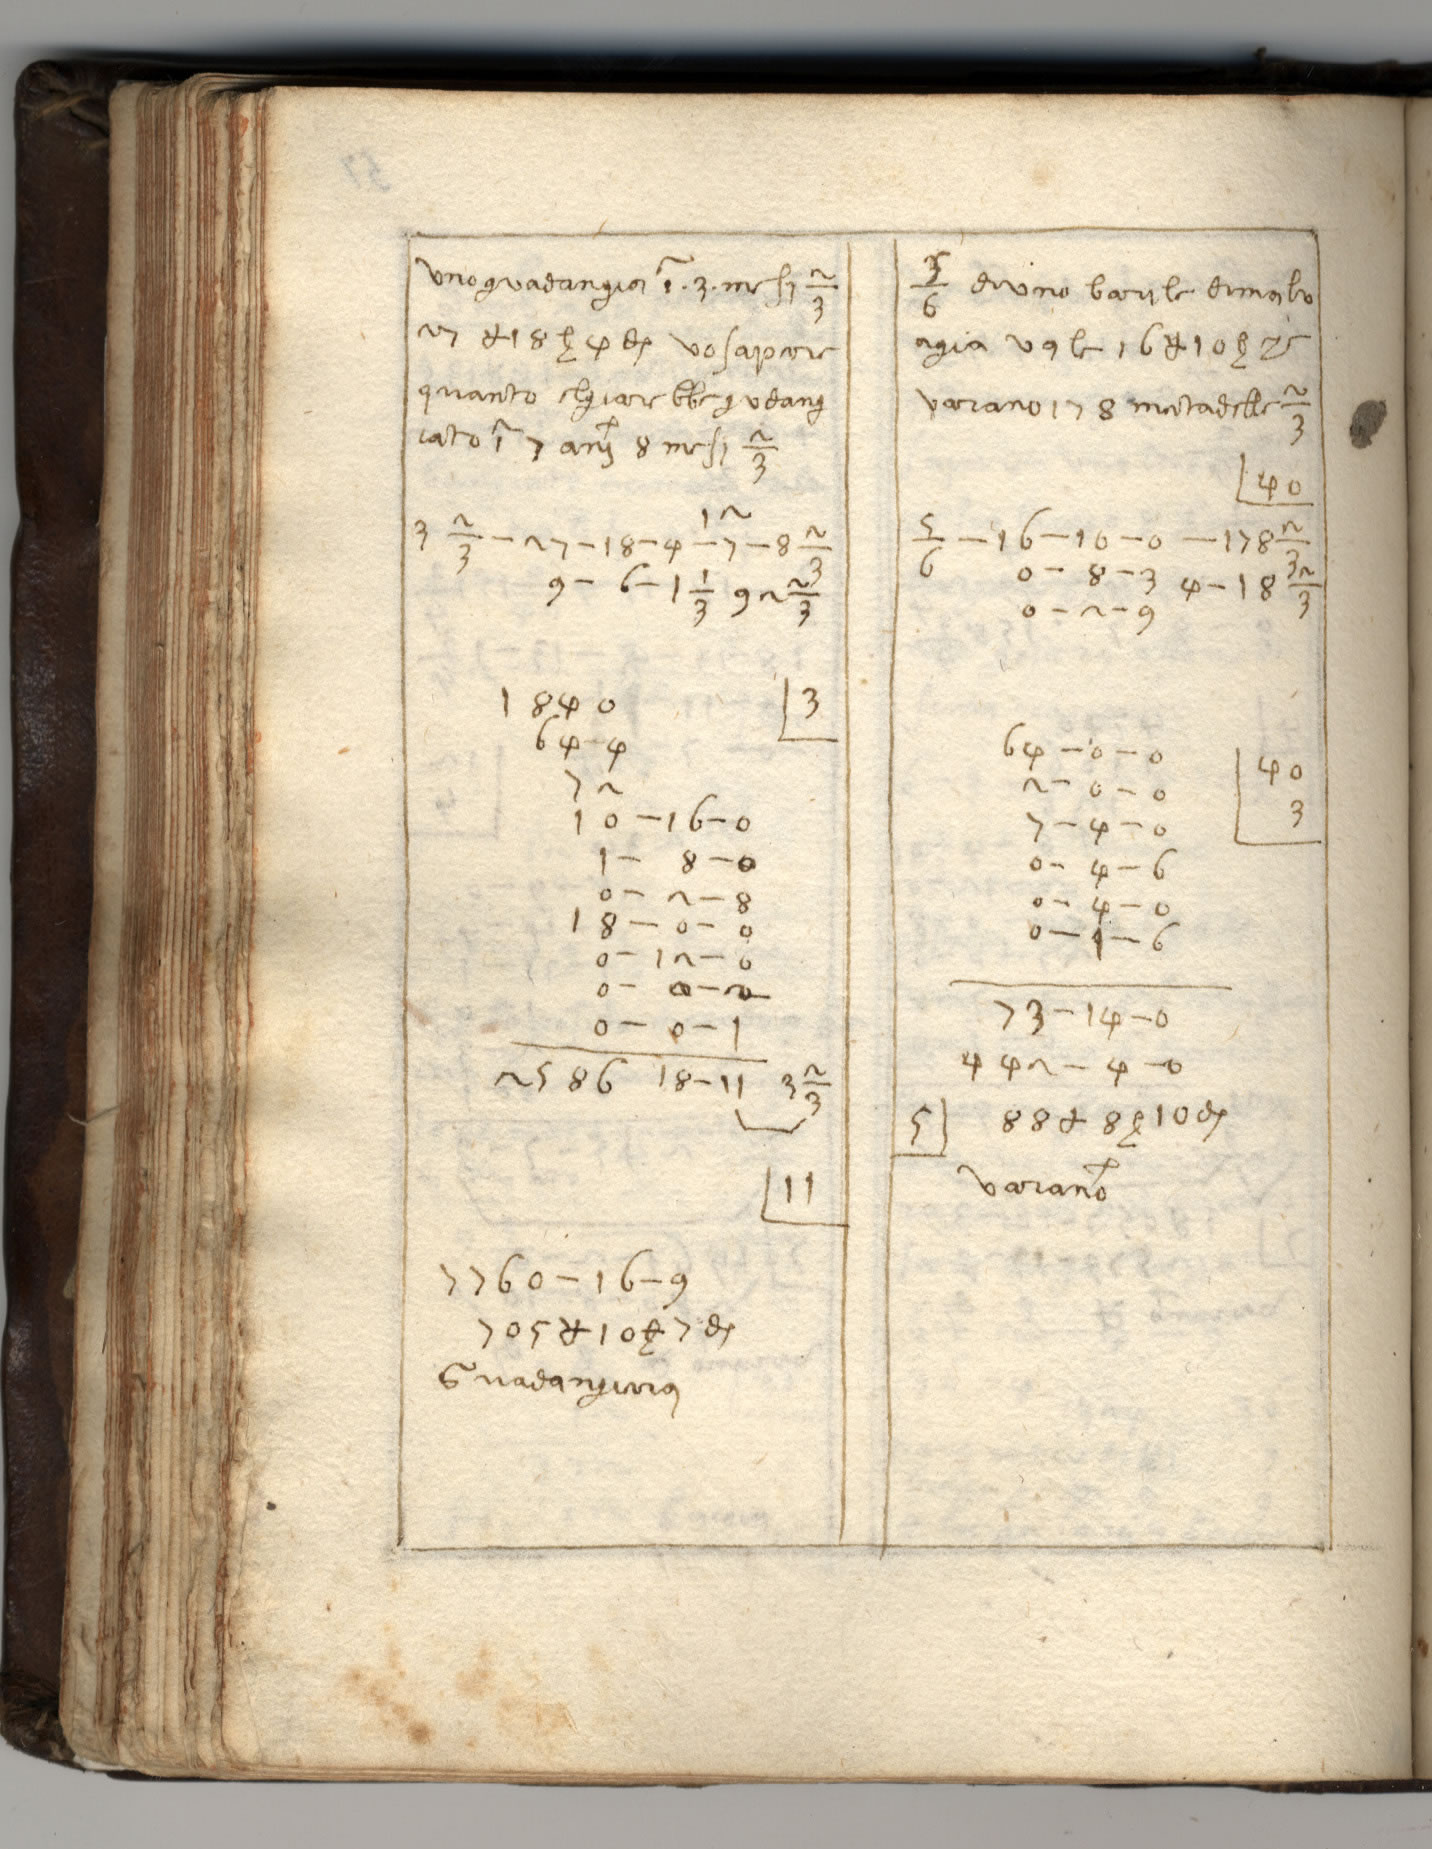 57
uno guadangia ĩ 3 mesi 2/3
27 ₰ 18 ꝭ 4 ₰ vo sapere
quanto elgiarebbe gudang
iato ĩ 7 anj 8 mesi 2/3
12
3 2/3 — 27 — 18 — 4 — 7 — 8 2/3
9 — 6 — 1 1/3 92 2/3
1840 3
64 — 4
72
10 — 16 — 0
1 — 8 — 0
0 — 2 — 8
18 — 0 — 0
0 — 12 — 0
0 — 0 — 1
2586 18 — 11 3 2/3
11
7760 — 16 — 9
705 ₰ 10 ꝭ 7 ₰
Guadangiara
5/6 di uno barile di malv
agia vale 16 ₰ 10 ꝭ
varano 178 metadelle 2/3
40
5/6 — 16 — 10 — 0 — 178 2/3
0 — 8 — 3 4 — 18 2/3
0 — 2 — 9
64 — 0 — 0
2 — 0 — 0 40
7 — 4 — 0 3
0 — 4 — 6
0 — 4 — 0
0 — 1 — 6
73 — 14 — 0
442 — 4 — 0
5 88 ₰ 8 ꝭ 10 ₰
varano